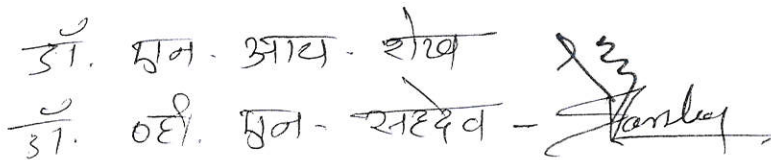 डॉ. एन. आय. शेख
डॉ. व्ही. एन. सहदेव -